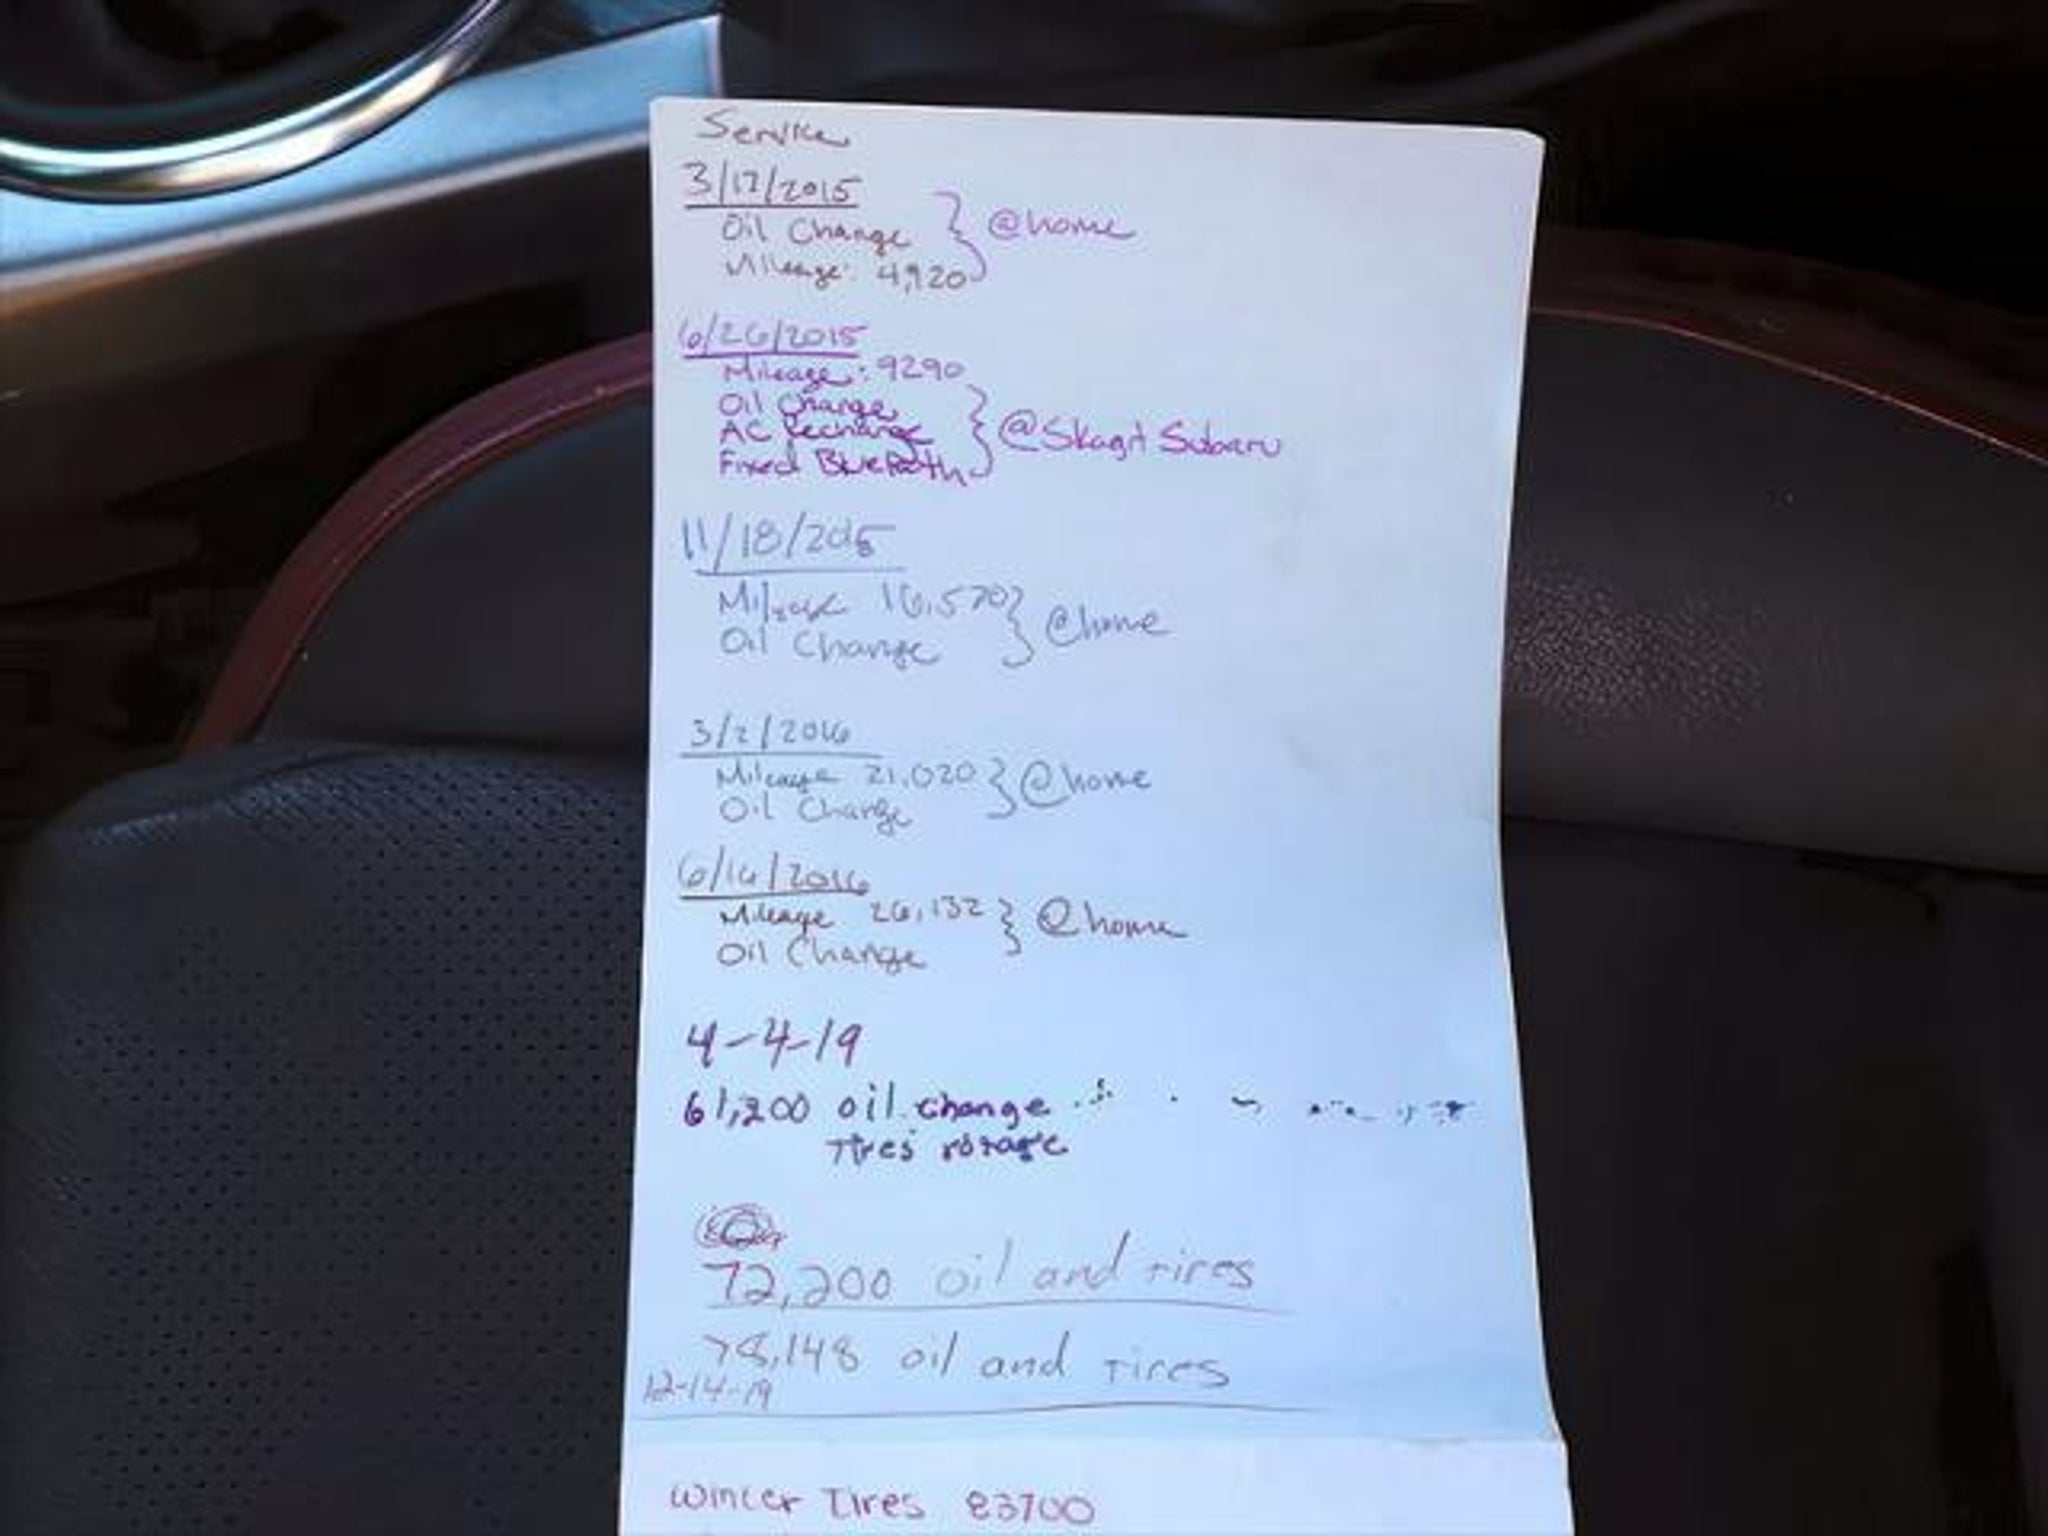 Service
3/17/2015
Oil Change
Mileage: 4,920
@home
6/26/2015
Mileage: 9290
Oil Change
AC Recharge
Fixed BlueTooth
@Skagit Subaru
11/18/2015
Mileage 16,570
Oil Change
@home
3/2/2016
Mileage 21,020
Oil Change
@home
6/16/2016
Mileage 26,132
Oil Change
@home
4-4-19
61,200 oil change
Tires rotate
72,200 oil and tires
78,148 oil and tires
12-14-19
winter Tires 83700